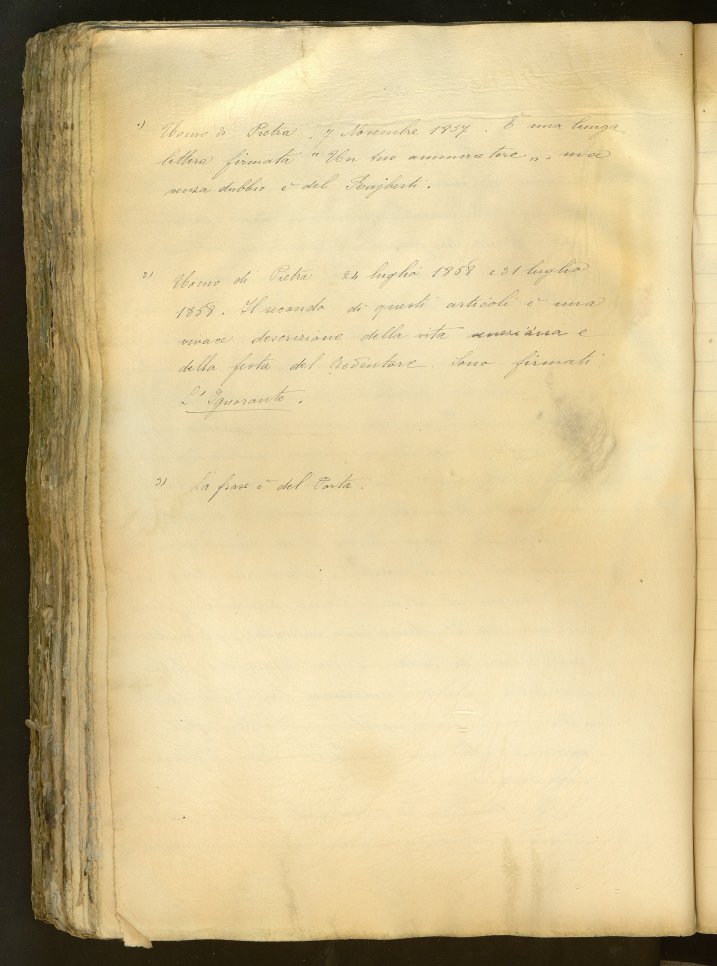 1) Uomo di Pietra, 7 Novembre 1857. È una lunga
lettera firmata "Un tuo ammiratore", ma
senza dubbio è del Rajberti.
2) Uomo di Pietra 24 luglio 1858 e 31 luglio
1858. Il secondo di questi articoli è una
vivace descrizione della vita veneziana e
della festa del Redentore. Sono firmati
L'Ignorante.
3) La frase è del Porta.